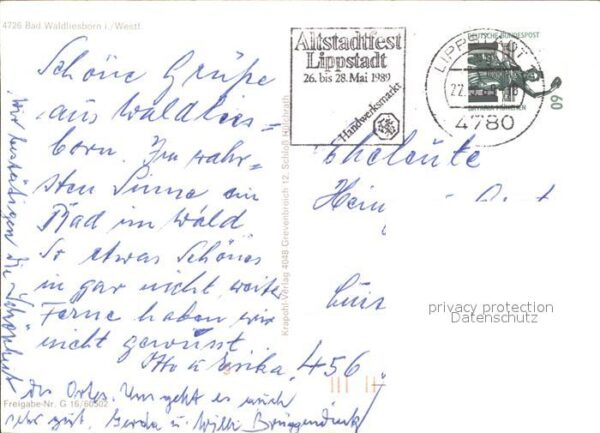 4726 Bad Waldliesborn i./Westf.
Schöne Grüße
aus Waldlies-
born. Im wahr-
sten Sinne ein
Bad im Wald
So etwas Schönes
in gar nicht weiter
Ferne haben wir
nicht gewusst
Otto u. Erika
Wir bestätigen die Schönheit
des Ortes. Uns geht es auch
sehr gut. Gerda u. Willi Brüggendieck
Freigabe-Nr. G 16/60502
Krapohl-Verlag 4048 Grevenbroich 12, Schloß Hülchrath
Altstadtfest
Lippstadt
26. bis 28. Mai 1989
Handwerksmarkt
LIPPSTADT
4780
DEUTSCHE BUNDESPOST
60
Eheleute
Hein
456
privacy protection
Datenschutz